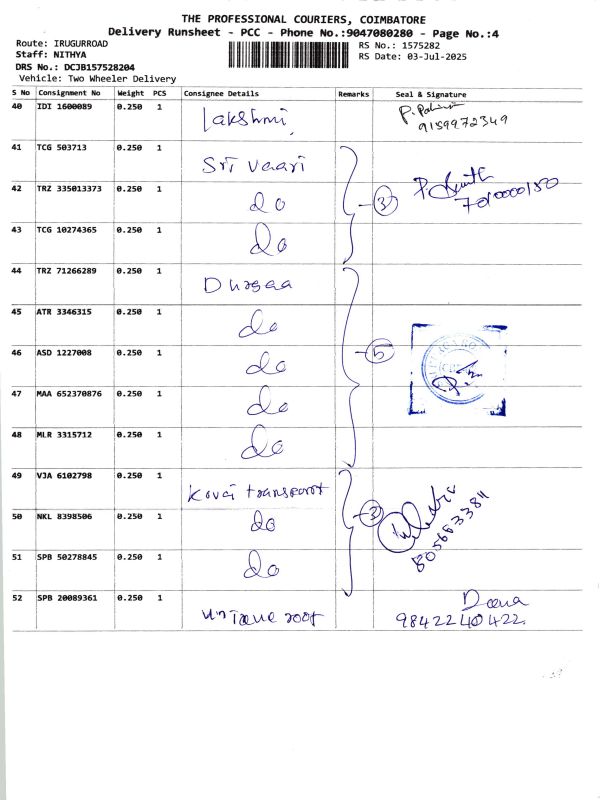 THE PROFESSIONAL COURIERS, COIMBATORE
Delivery Runsheet - PCC - Phone No.:9047080280 - Page No.:4
Route: IRUGURROAD
RS No.: 1575282
Staff: NITHYA
RS Date: 03-Jul-2025
DRS No.: DCJB157528204
Vehicle: Two Wheeler Delivery
S No Consignment No Weight PCS Consignee Details Remarks Seal & Signature
40 IDI 1600089 0.250 1 Lakshmi
9159972349
41 TCG 503713 0.250 1 Sri Vaari
42 TRZ 335013373 0.250 1 do 3
43 TCG 10274365 0.250 1 do
44 TRZ 71266289 0.250 1 Durgaa
45 ATR 3346315 0.250 1 do
46 ASD 1227008 0.250 1 do 5
47 MAA 652370876 0.250 1 do
48 MLR 3315712 0.250 1 do
49 VJA 6102798 0.250 1 Kovai transport
50 NKL 8398506 0.250 1 do 3
51 SPB 50278845 0.250 1 do
52 SPB 20089361 0.250 1 roof
9842240422